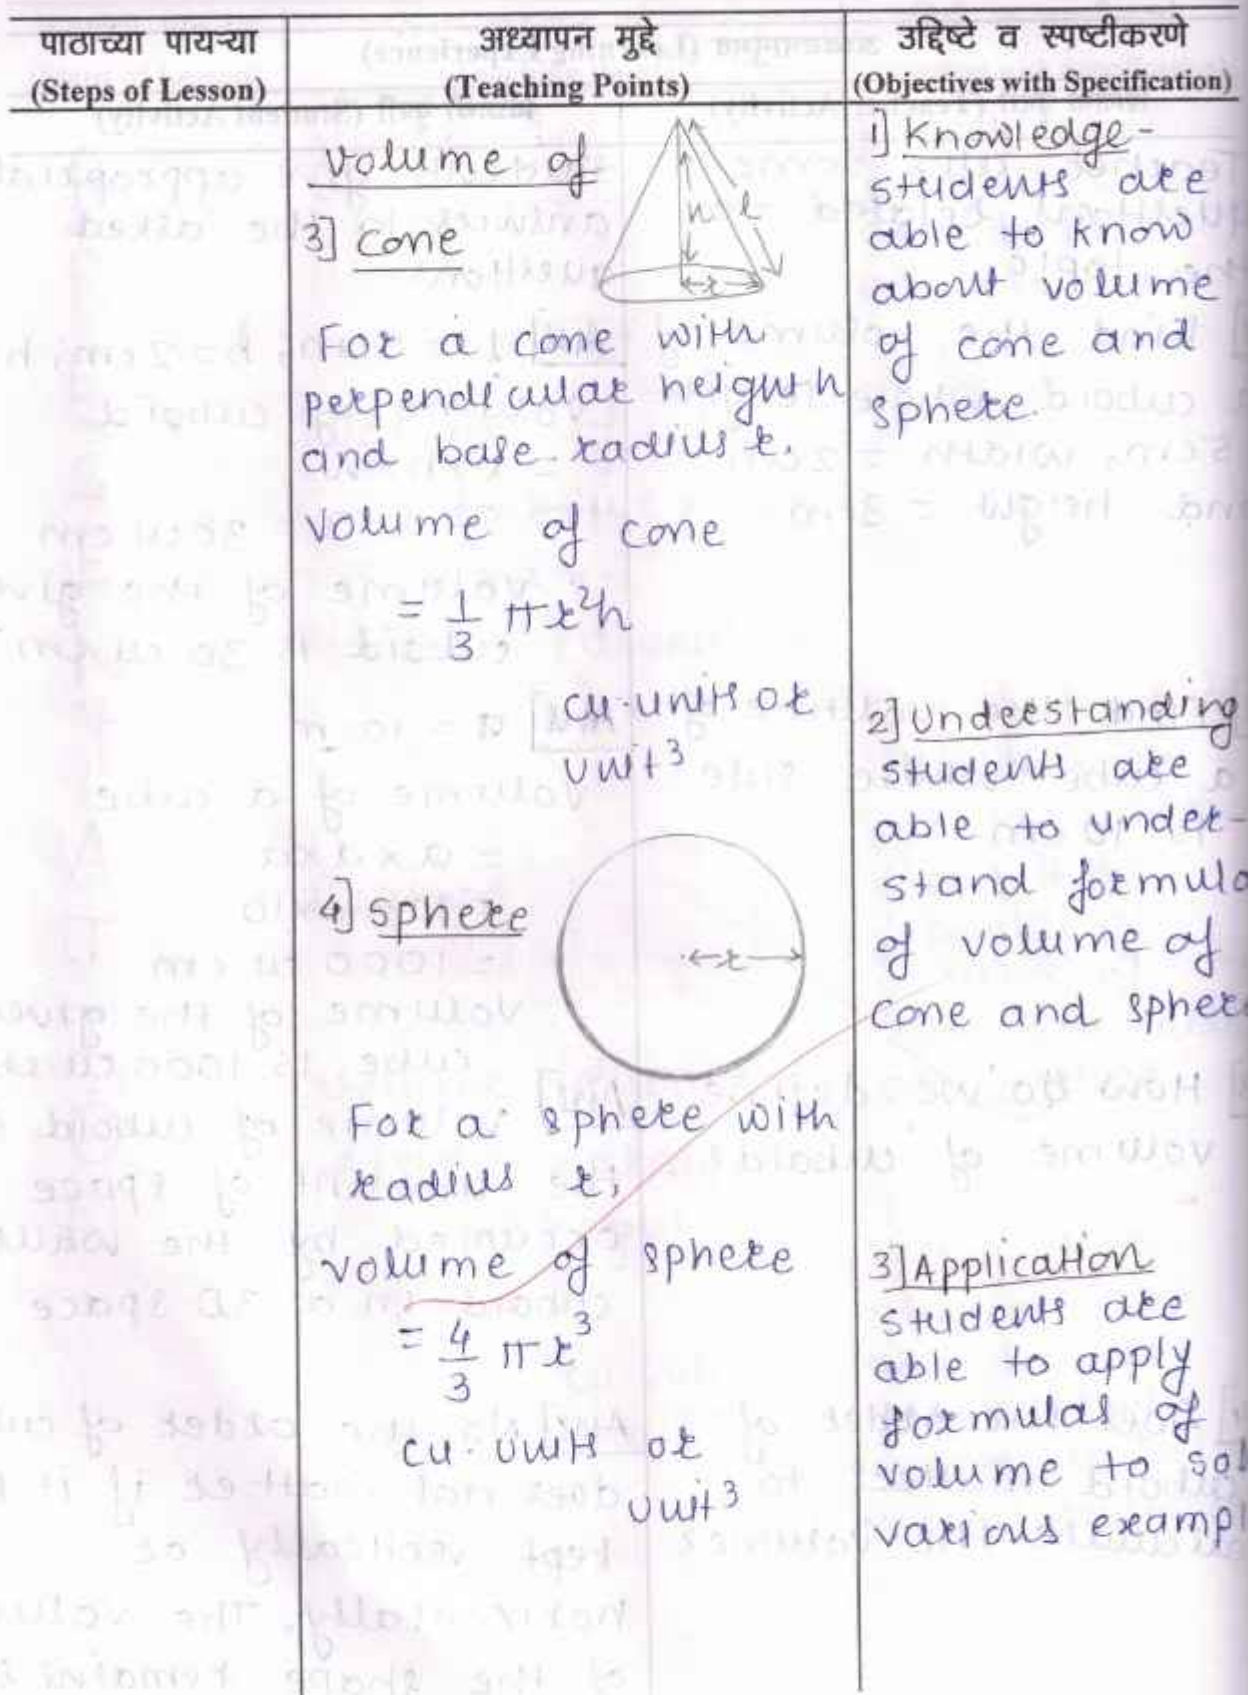 पाठाच्या पायऱ्या
(Steps of Lesson)
अध्यापन मुद्दे
(Teaching Points)
उद्दिष्टे व स्पष्टीकरणे
(Objectives with Specification)
volume of
3] cone
h
l
r
For a cone with
perpendicular height h
and base radius r.
volume of cone
= 1/3 πr²h
cu. units or
unit³
4] sphere
r
For a sphere with
radius r,
volume of sphere
= 4/3 πr³
cu. units or
unit³
1] Knowledge-
students are
able to know
about volume
of cone and
sphere.
2] Understanding
students are
able to under-
stand formula
of volume of
cone and sphere
3] Application
students are
able to apply
formulas of
volume to
various